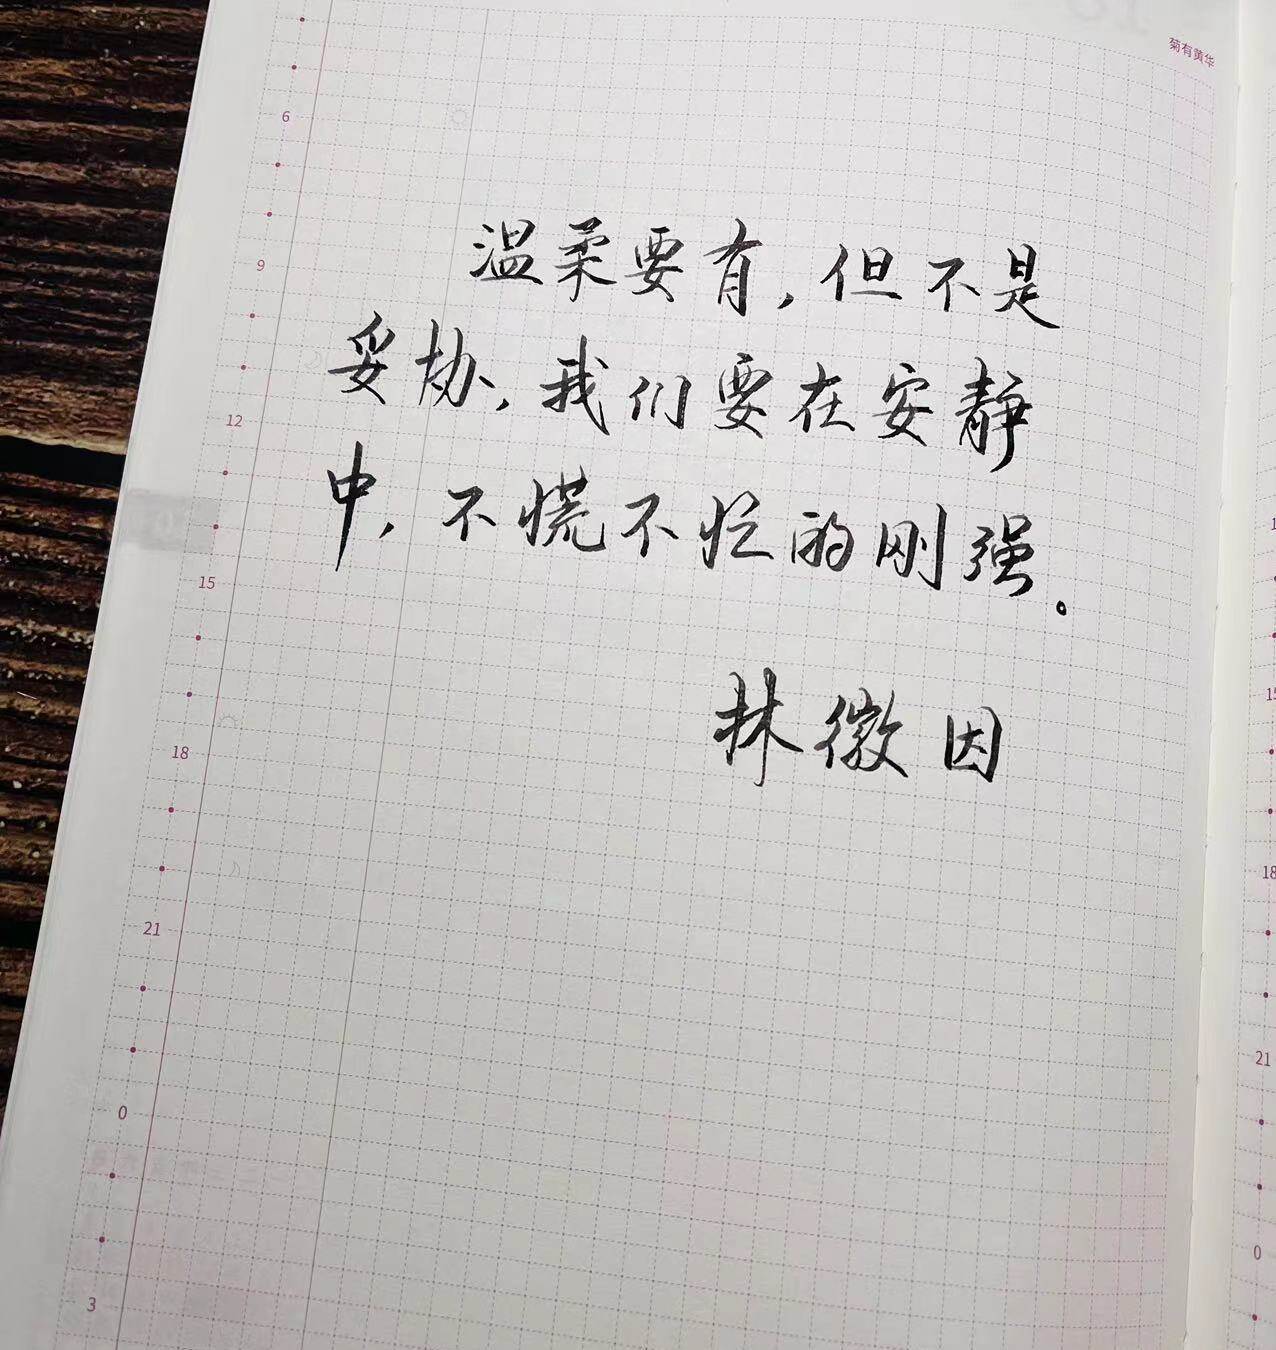 菊有黄华
6
温柔要有，但不是
9
妥协，我们要在安静
12
中，不慌不忙的刚强。
15
林徽因
18
21
0
3
15
18
21
0